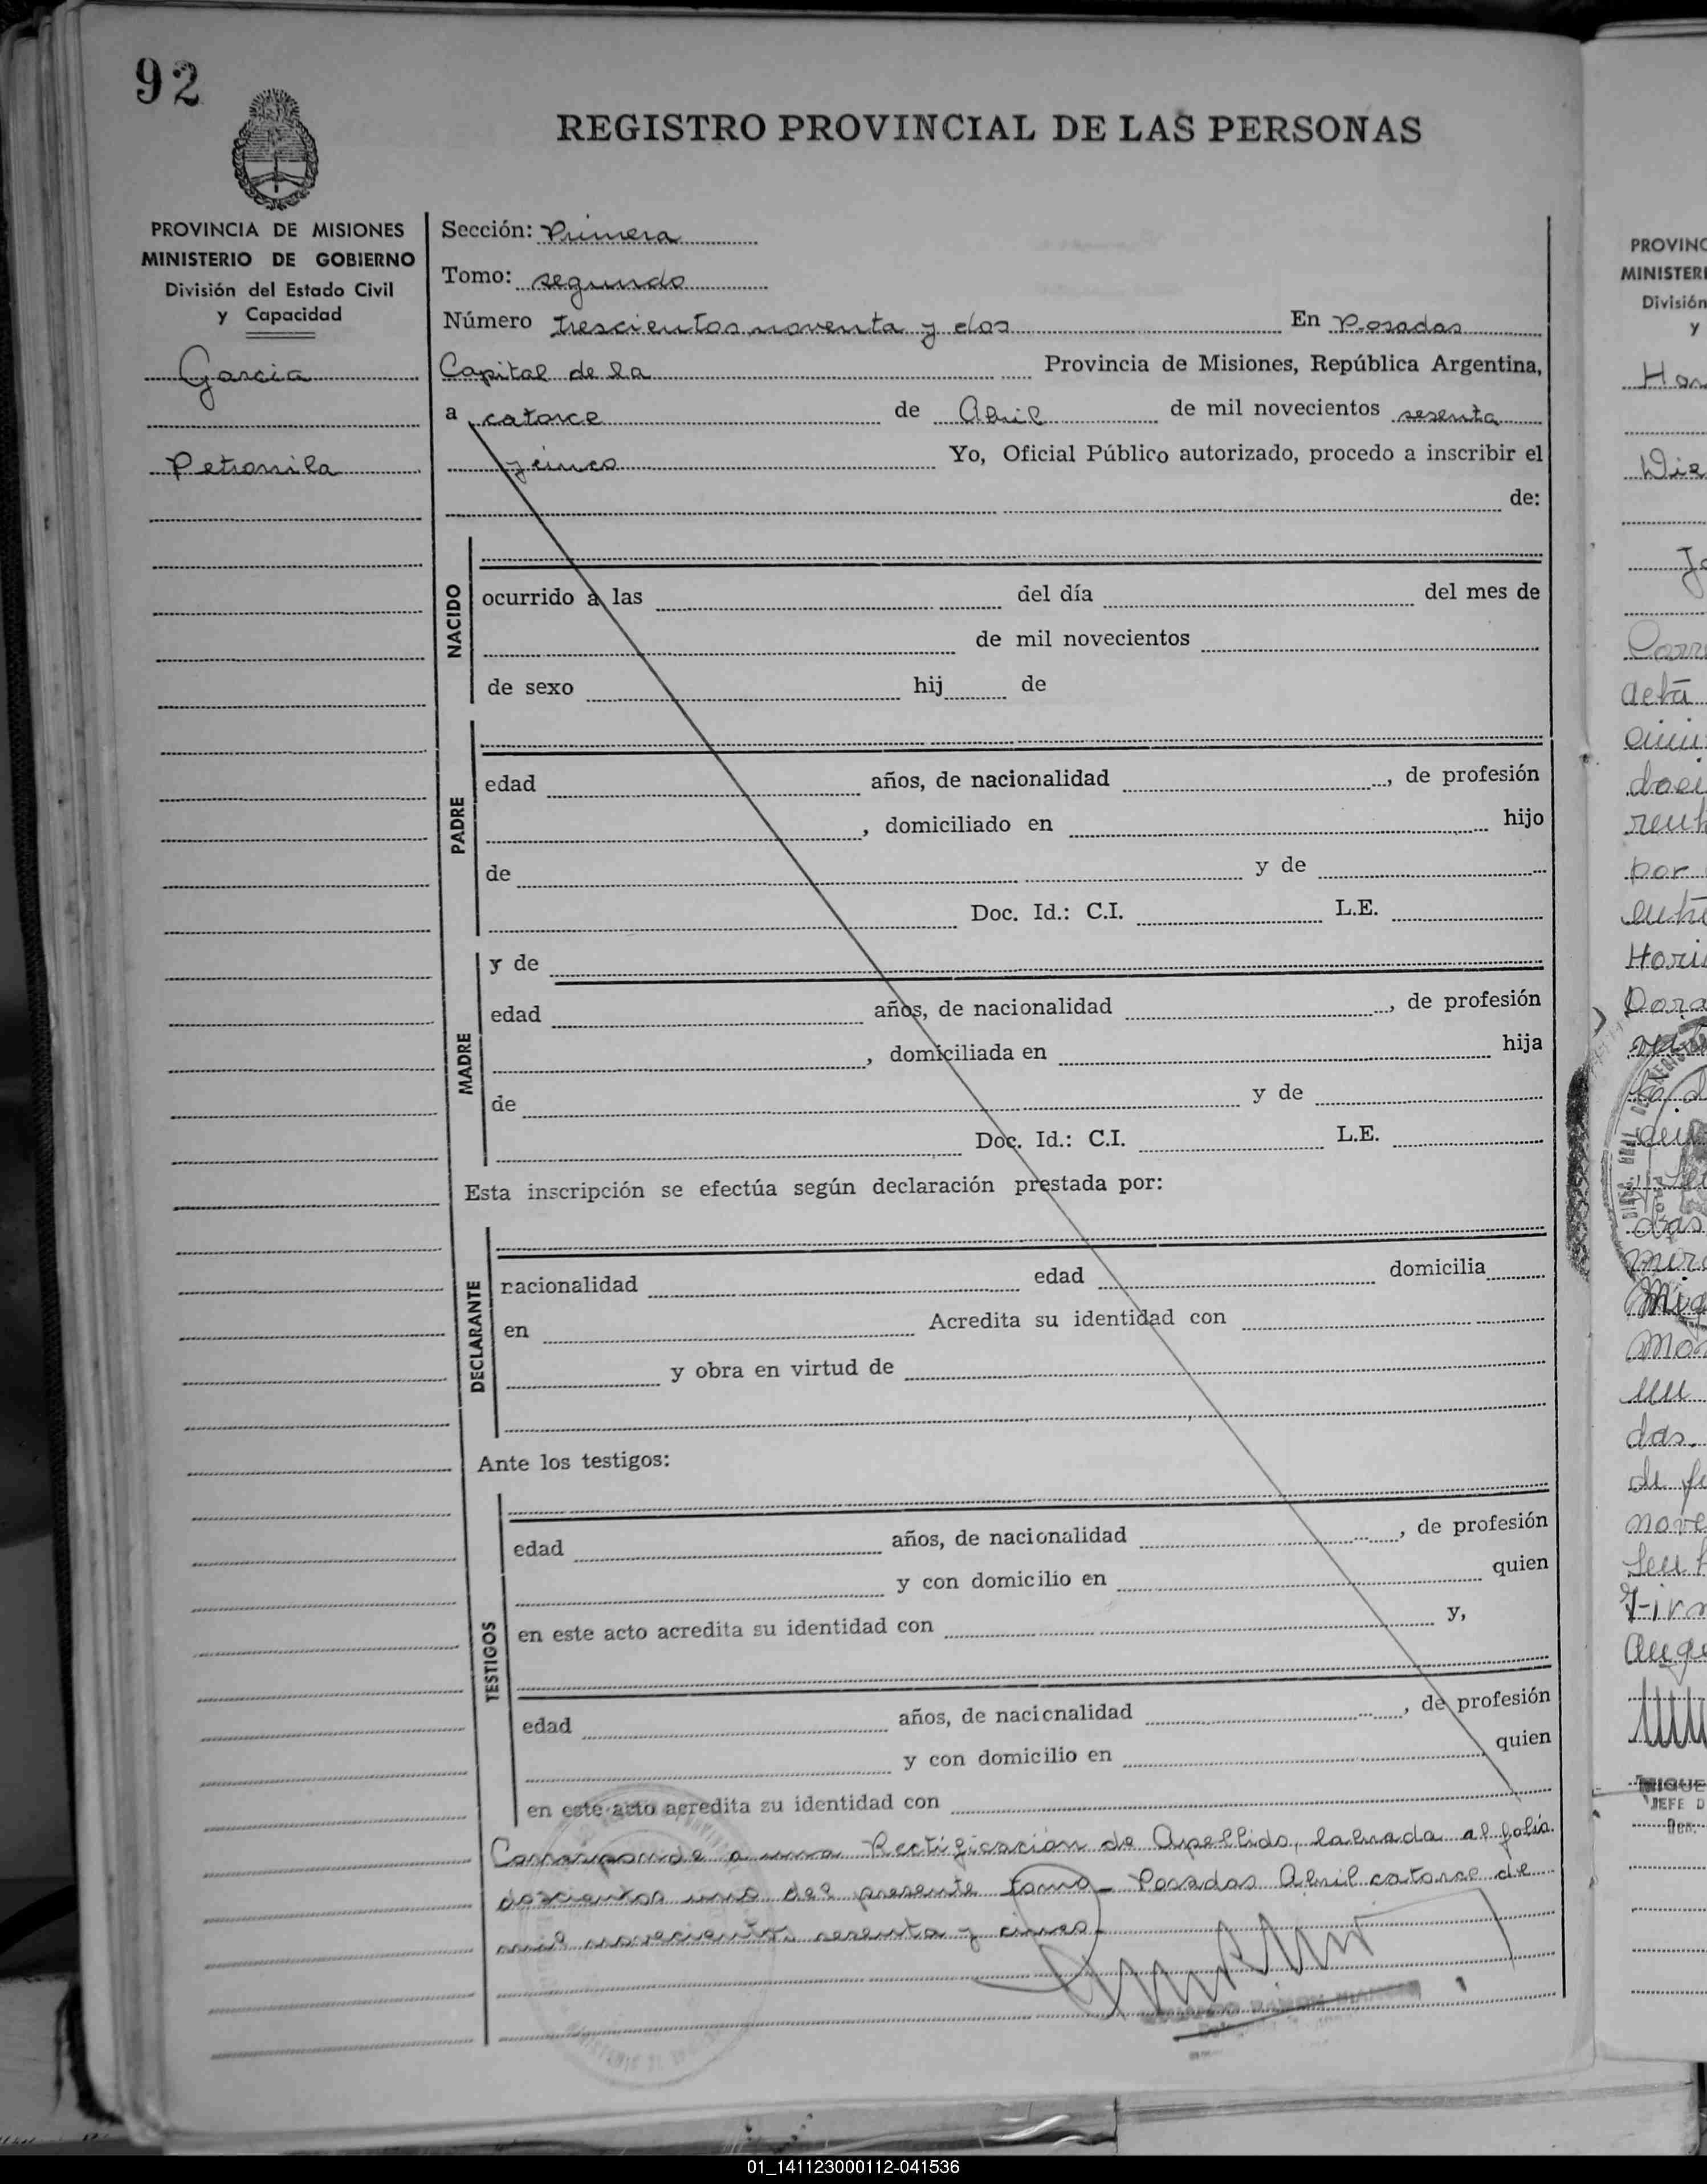 92
REGISTRO PROVINCIAL DE LAS PERSONAS
PROVINCIA DE MISIONES
MINISTERIO DE GOBIERNO
División del Estado Civil
y Capacidad
Garcia
Petronila
Sección: Primera
Tomo: segundo
Número trescientos noventa y dos En Posadas
Capital de la Provincia de Misiones, República Argentina,
a catorce de Abril de mil novecientos sesenta
y cinco Yo, Oficial Público autorizado, procedo a inscribir el
de:
NACIDO
ocurrido a las del día del mes de
de mil novecientos
de sexo hij de
PADRE
edad años, de nacionalidad , de profesión
, domiciliado en hijo
de y de
Doc. Id.: C.I. L.E.
MADRE
y de
edad años, de nacionalidad , de profesión
, domiciliada en hija
de y de
Doc. Id.: C.I. L.E.
Esta inscripción se efectúa según declaración prestada por:
DECLARANTE
nacionalidad edad domicilia
en Acredita su identidad con
y obra en virtud de
Ante los testigos:
TESTIGOS
edad años, de nacionalidad , de profesión
y con domicilio en quien
en este acto acredita su identidad con y,
edad años, de nacionalidad , de profesión
y con domicilio en quien
en este acto acredita su identidad con
Corresponde a una Rectificación de Apellido, labrada al folio
doscientos uno del presente tomo_ Posadas Abril catorce de
mil novecientos sesenta y cinco_
PROVINC
MINISTERI
División
y
Hor
acta
por
das
de
nove
MIGUE
JEFE D
01_141123000112-041536